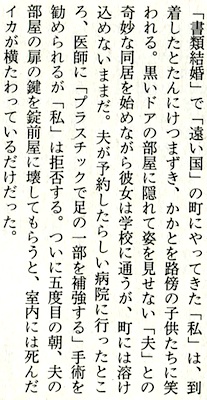 「書類結婚」で「遠い国」の町にやってきた「私」は、到
着したとたんにけつまずき、かかとを路傍の子供たちに笑
われる。黒いドアの部屋に隠れて姿を見せない「夫」との
奇妙な同居を始めながら彼女は学校に通うが、町には溶け
込めないままだ。夫が予約したらしい病院に行ったとこ
ろ、医師に「プラスチックで足の一部を補強する」手術を
勧められるが「私」は拒否する。ついに五度目の朝、夫の
部屋の扉の鍵を錠前屋に壊してもらうと、室内には死んだ
イカが横たわっているだけだった。